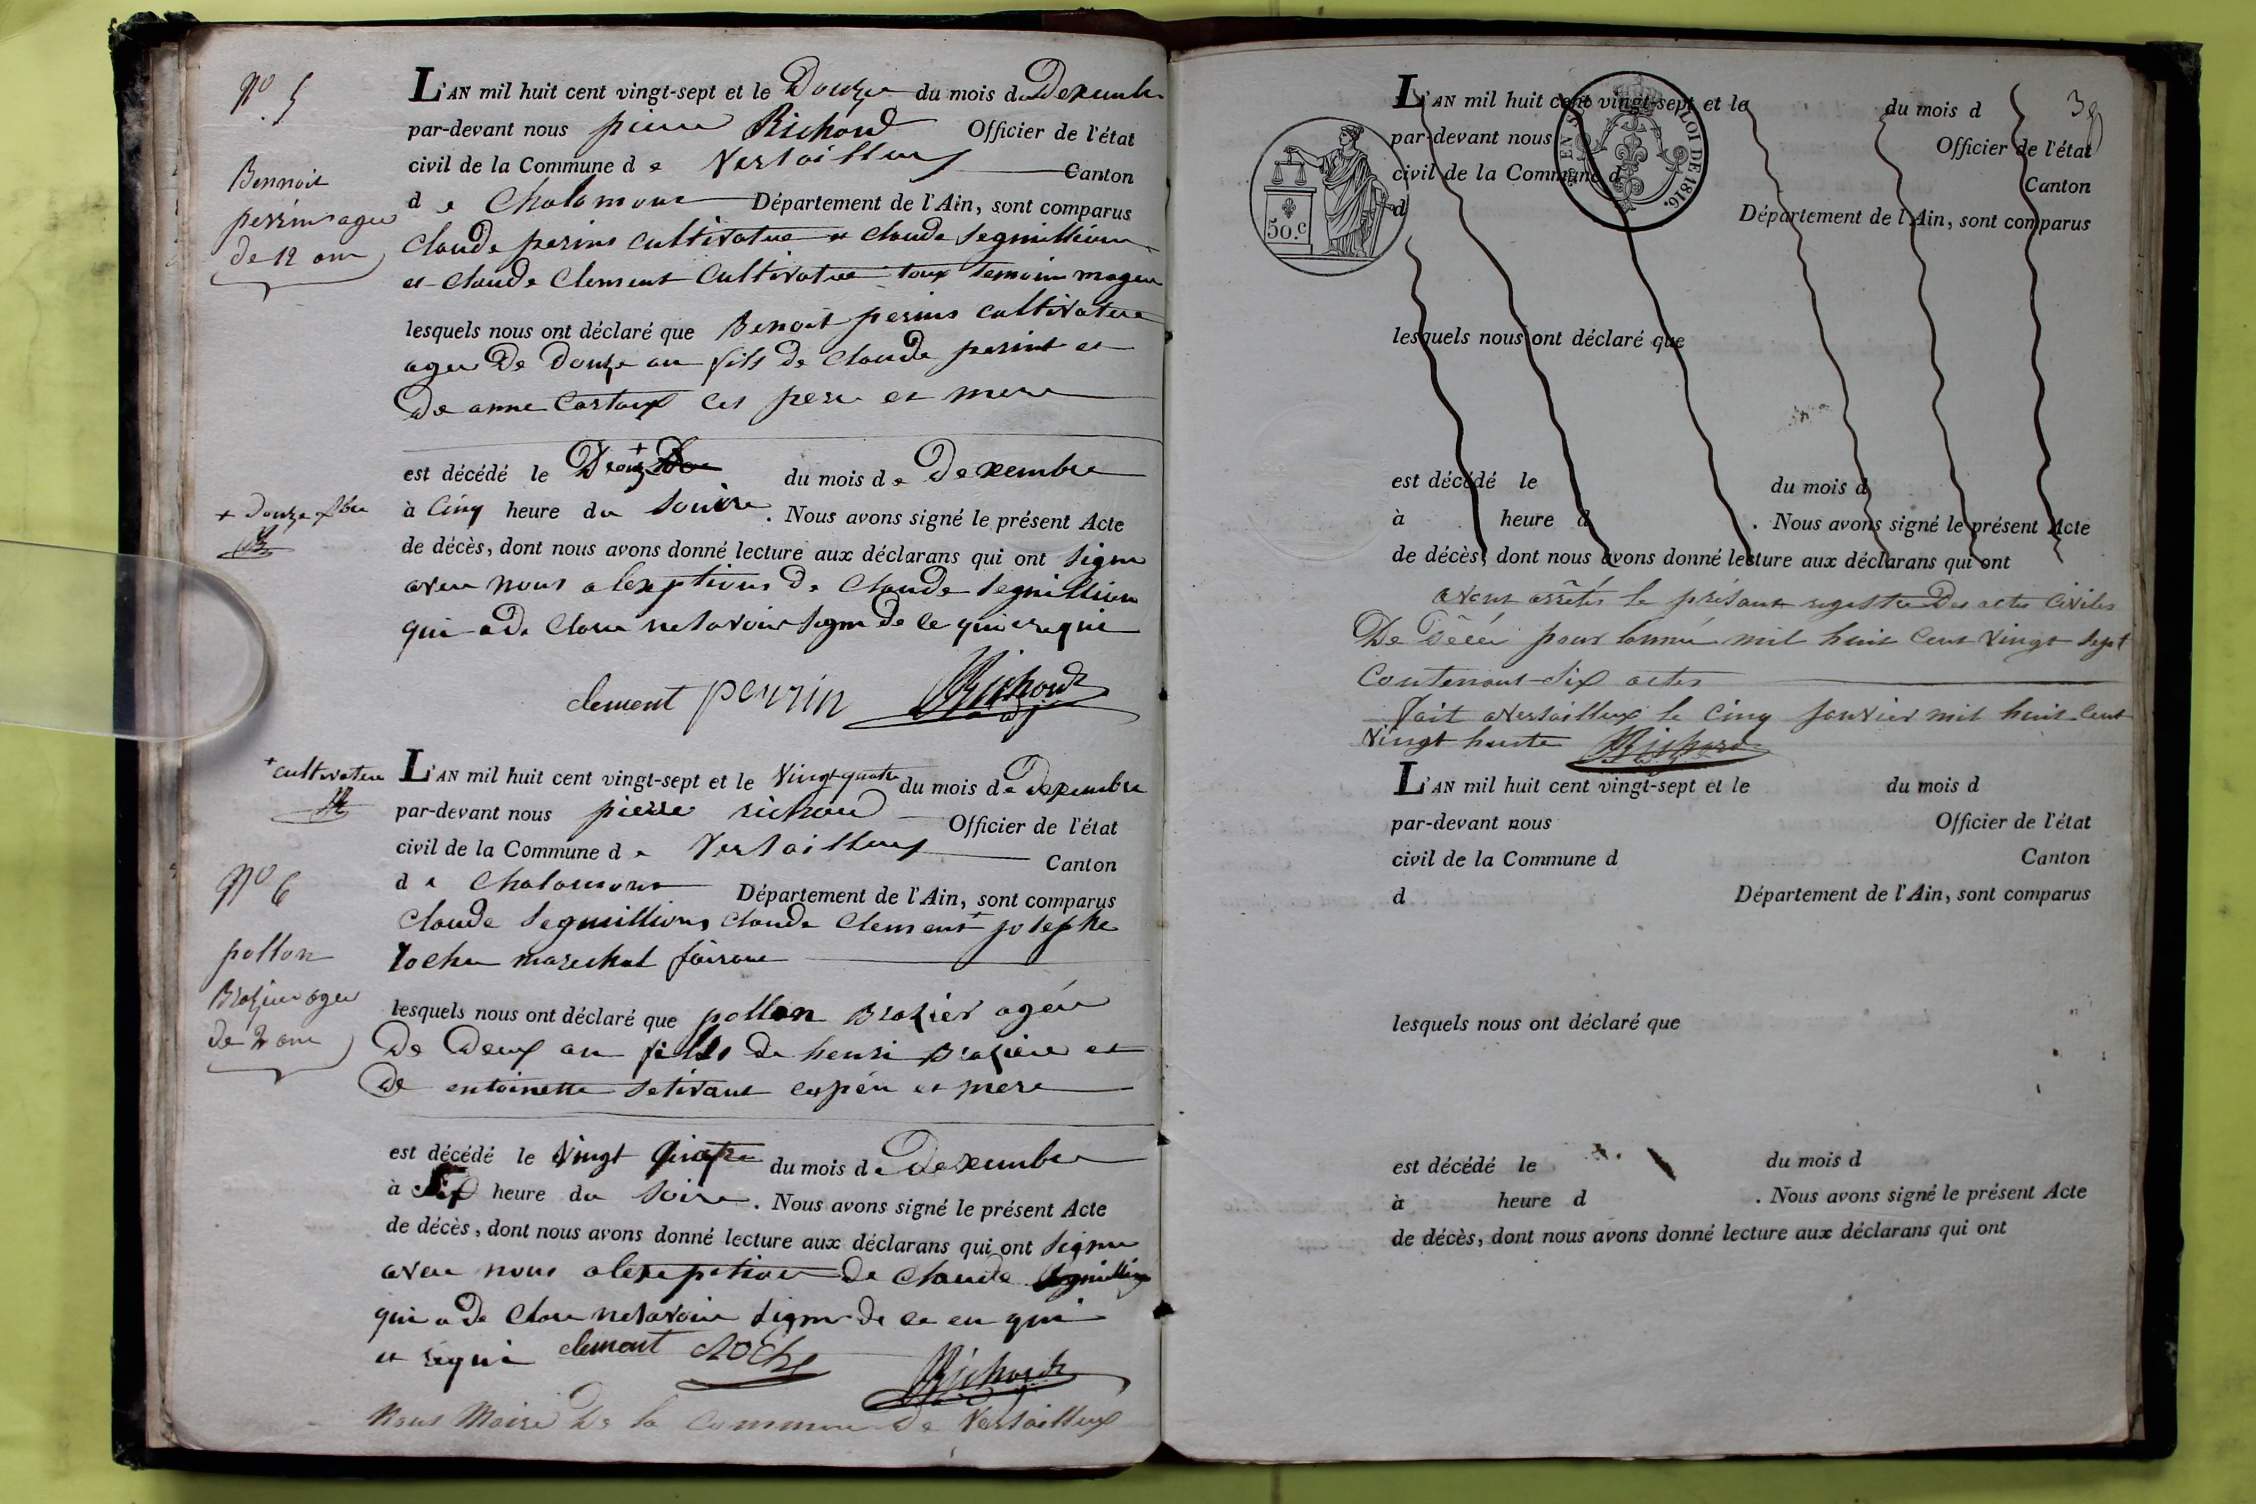 N° 5
Bennoit
perrin agee
de 12 ans
L'AN mil huit cent vingt-sept et le Douze du mois de Dexembre
par-devant nous pierre Richard Officier de l'état
civil de la Commune de Versailleux Canton
de Chalamont Département de l'Ain, sont comparus
Claude perins cultivateue et Claude Segmillions
et Claude Clement Cultivateue toux temoin mageu
lesquels nous ont déclaré que Benoit perins cultivateue
agee De Douze an fils de Claude perint et
De anne Cartaux ces pere et mere
est décédé le du mois de Dexembre
+ Douze
à Cinq heure du Souire. Nous avons signé le présent Acte
de décès, dont nous avons donné lecture aux déclarans qui ont signe
avec nous a lexptions De Claude Segmillions
qui a De Clare ne savoir signe De ce qui requi
clement perrin Richard
+ cultivateue
L'AN mil huit cent vingt-sept et le Vingt quatre du mois de Dexembre
par-devant nous pierre richard Officier de l'état
civil de la Commune de Versailleux Canton
N° 6
de Chalamont Département de l'Ain, sont comparus
Claude Segmillions Claude Clement + josephe
roche marechal
pollon
Brazier agee
de 2 ans
lesquels nous ont déclaré que pollon Brazier agée
De Deux an fills De henri Braziere et
De entoinette Setivant ces pere et mere
est décédé le Vingt quatre du mois de Dexembre
à Six heure du Soire. Nous avons signé le présent Acte
de décès, dont nous avons donné lecture aux déclarans qui ont Signe
avec nous a lexeption De Claude Segmillions
qui a De Clare ne savoir signe De ce en qui
et requi clement roche Richard
Nous Maire De la Commune De Versailleux
39
L'AN mil huit cent vingt-sept et le du mois d
par-devant nous Officier de l'état
civil de la Commune d Canton
d Département de l'Ain, sont comparus
EN S LOI DE 1816.
50.c
lesquels nous ont déclaré que
est décédé le du mois d
à heure d . Nous avons signé le présent Acte
de décès, dont nous avons donné lecture aux déclarans qui ont
avons arrêtés le présant registre Des actes Civiles
De Décé pour lannée mil huit Cent Vingt Sept
Contenant Six actes
Fait a Versailleux le Cinq janvier mil huit Cent
Vingt huite Richard
L'AN mil huit cent vingt-sept et le du mois d
par-devant nous Officier de l'état
civil de la Commune d Canton
d Département de l'Ain, sont comparus
lesquels nous ont déclaré que
est décédé le du mois d
à heure d . Nous avons signé le présent Acte
de décès, dont nous avons donné lecture aux déclarans qui ont